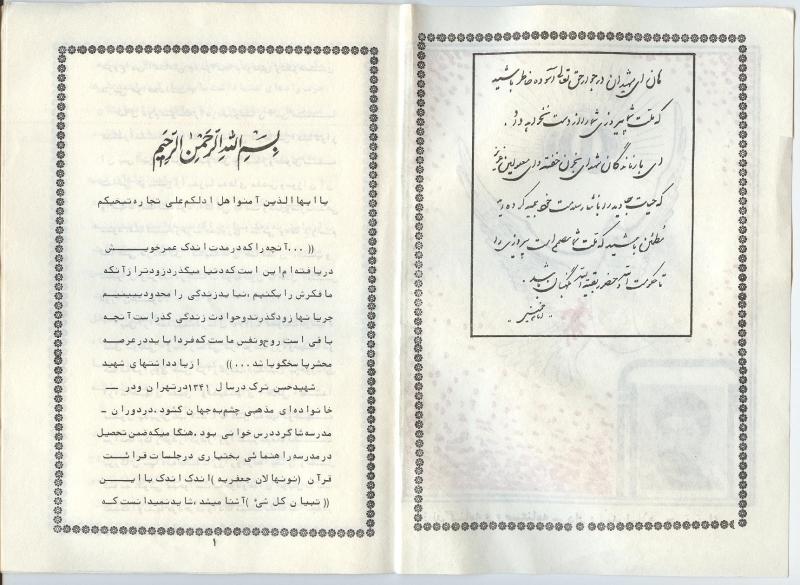 هان ای شهیدان در جوار حق تعالی آسوده خاطر باشید
که ملت شما پیروزی شما را از دست نخواهد داد.
ای بازماندگان شهدای بخون خفته و ای معلولین عزیز
که حیات جاوید را با نثار سلامت خود بیمه کرده‌اید
مطمئن باشید که ملت شما مصمم است پیروزی را
تا حکومت الله و حضور بقیة الله نگهبان باشد.
امام خمینی
بسم الله الرحمن الرحیم
یا ایها الذین آمنوا هل ادلکم علی تجاره تنجیکم
((...آنچه را که در مدت اندک عمر خویش
دریافته‌ام این است که دنیا میگذرد زودتر از آنکه
ما فکرش را بکنیم، نباید زندگی را محدود ببینیم
جریانها زودگذرند و حوادث زندگی گذراست آنچه
باقی است روح و نفس ماست که فردا باید در عرصه
محشر پاسخگو باند...)) از یادداشتهای شهید
شهید حسن ترک در سال ۱۳۴۱ در تهران و در ــ
خانواده‌ای مذهبی چشم به جهان گشود. در دوران ــ
مدرسه شاگرد درس خوانی بود. هنگامیکه ضمن تحصیل
در مدرسه راهنمائی بختیاری در جلسات قرائت
قرآن (نونهالان جعفریه) اندک اندک با ایــن
((تبیان کل شیء)) آشنا میشد، شاید نمیدانست که
۱